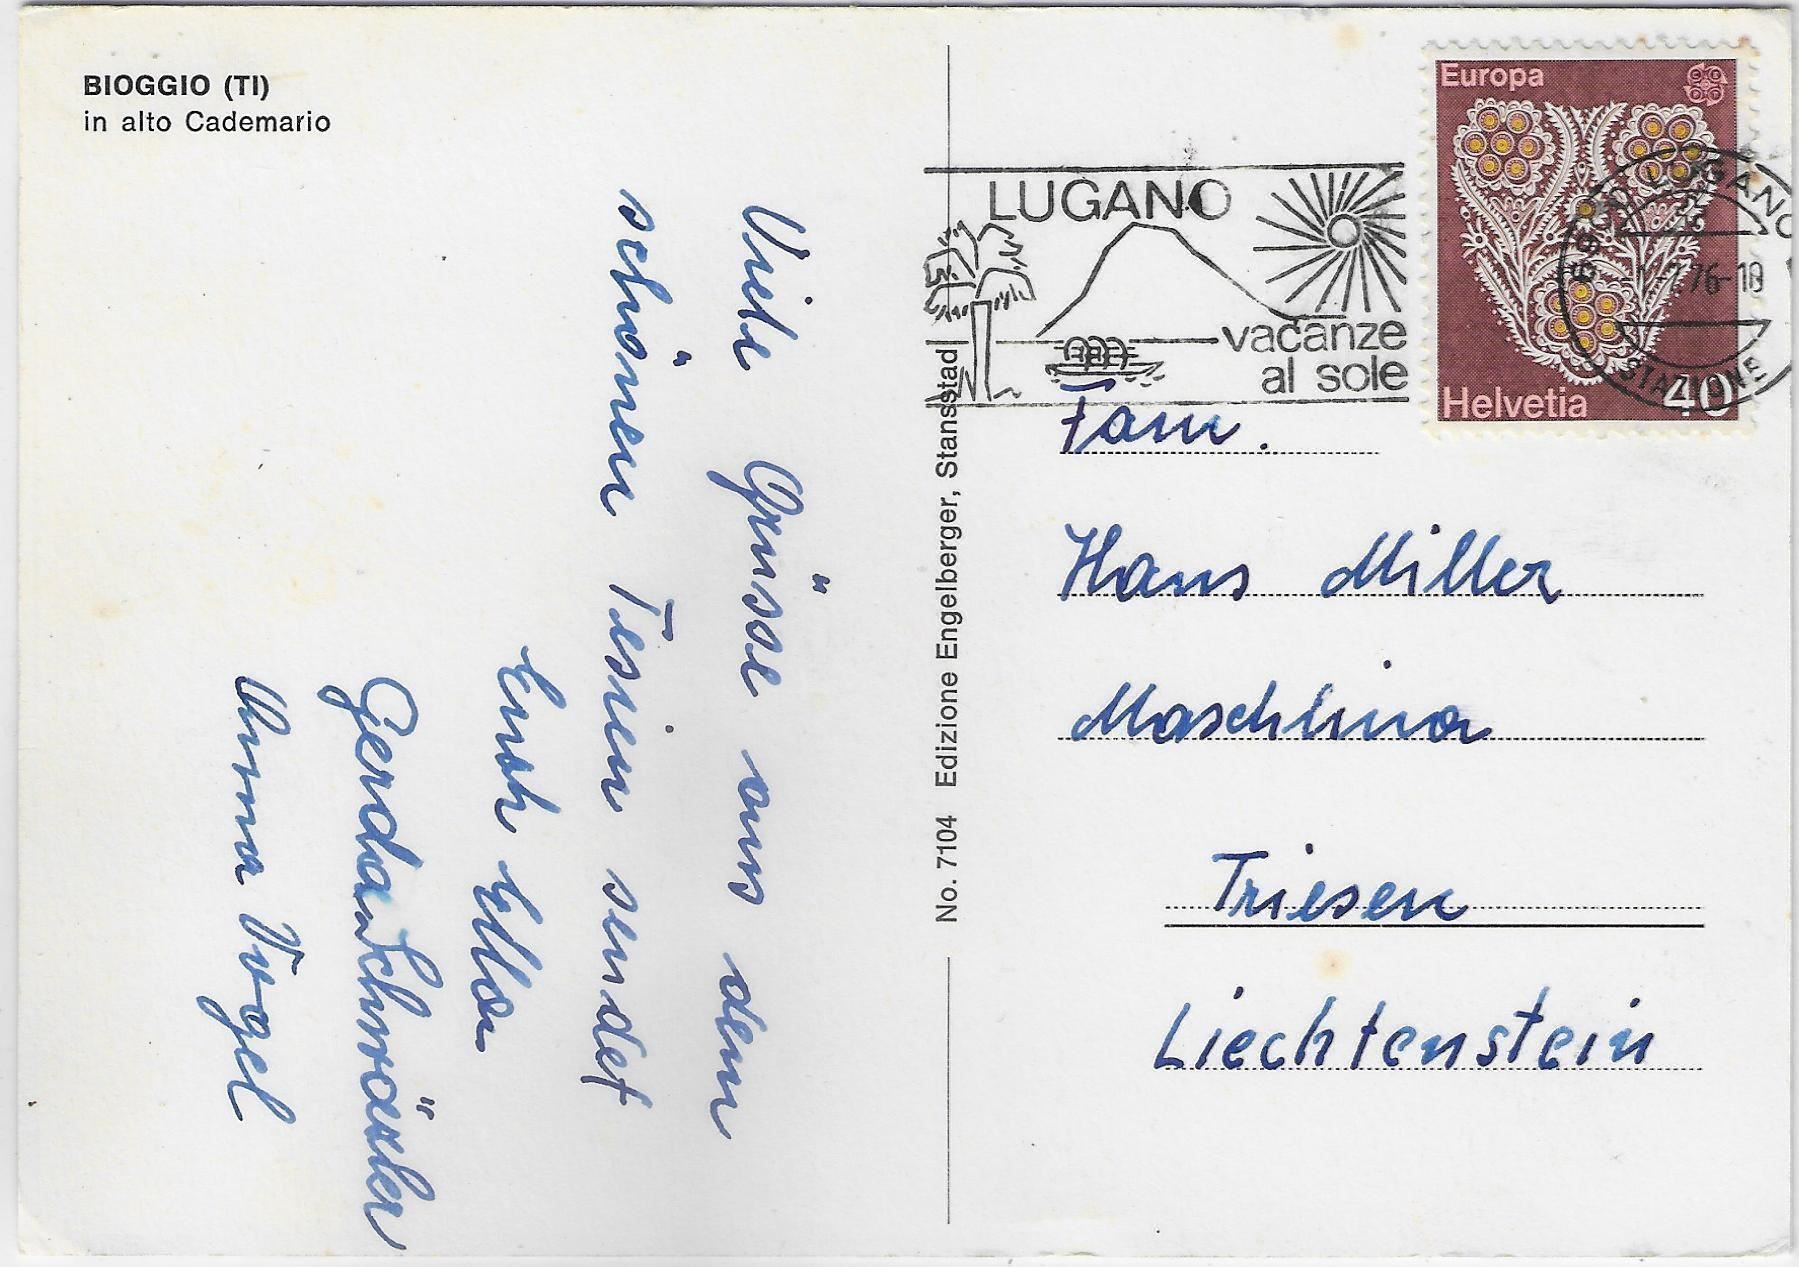 BIOGGIO (TI)
in alto Cademario
Viele Grüsse aus dem
schönen Tessin sendet
Anna Vogel
No. 7104 Edizione Engelberger, Stansstad
LUGANO
vacanze
al sole
Europa
Helvetia
40
LUGANO
-7.76-18
STAZIONE
Fam.
Hans Miller
Maschlina
Triesen
Liechtenstein